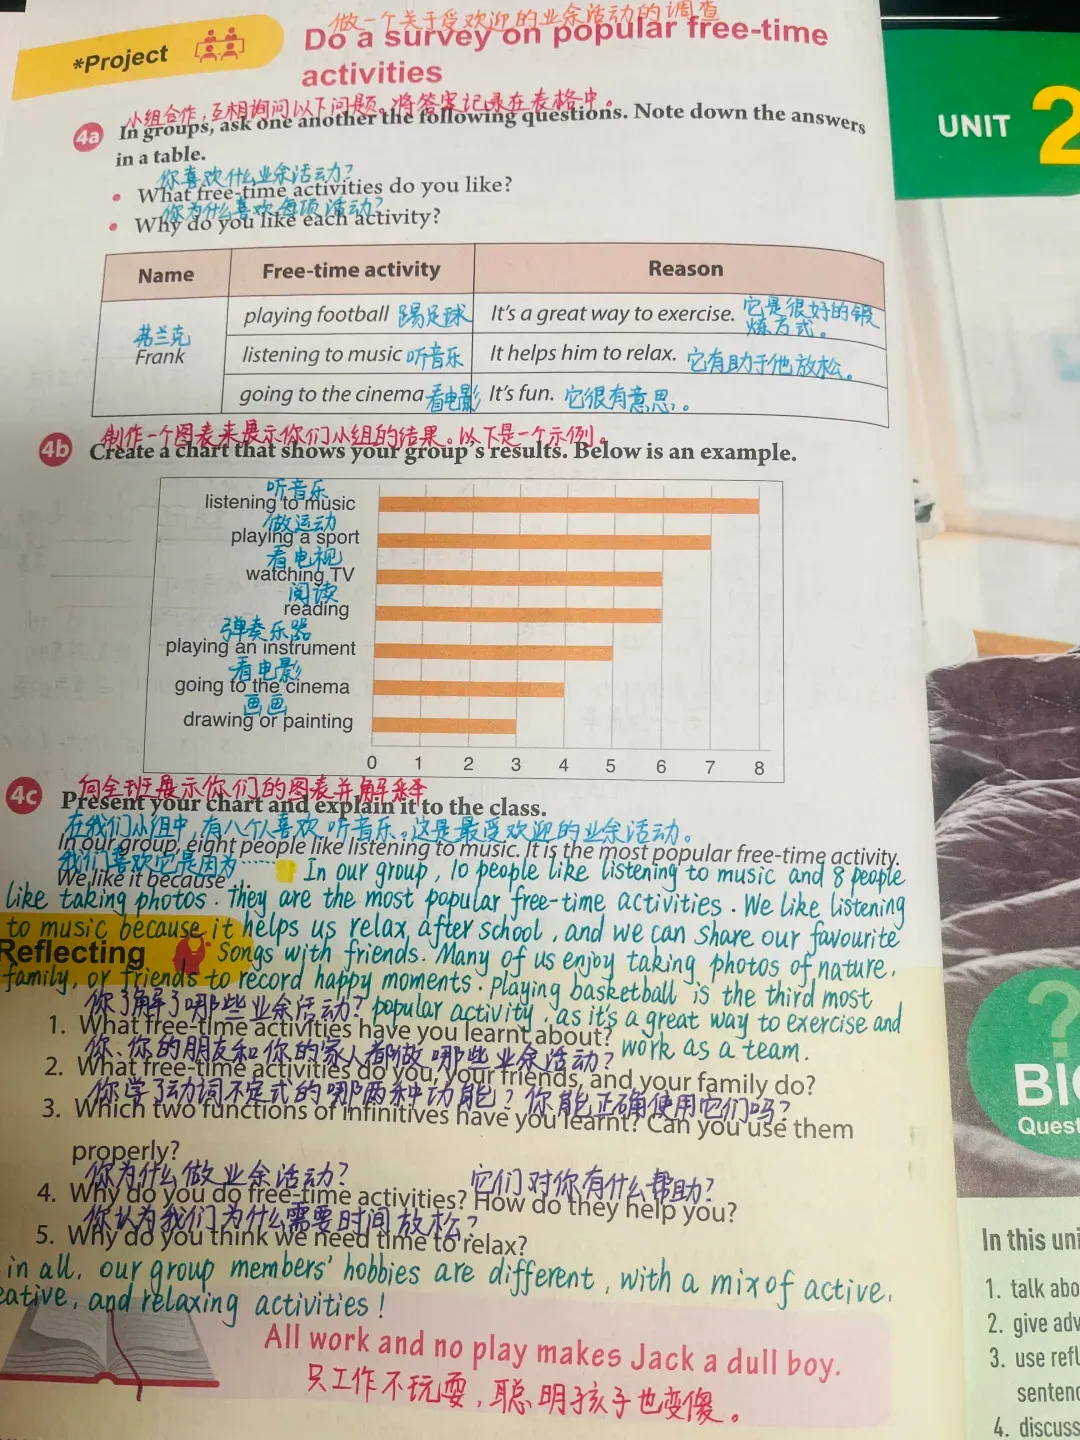 做一个关于受欢迎的业余活动的调查
*Project
Do a survey on popular free-time
activities
小组合作,互相询问以下问题。将答案记录在表格中。
4a In groups, ask one another the following questions. Note down the answers
in a table.
你喜欢什么业余活动?
• What free-time activities do you like?
你为什么喜欢每项活动?
• Why do you like each activity?
Name Free-time activity Reason
弗兰克
Frank
playing football 踢足球 It's a great way to exercise. 它是很好的锻
炼方式。
listening to music 听音乐 It helps him to relax. 它有助于他放松。
going to the cinema 看电影 It's fun. 它很有意思。
制作一个图表来展示你们小组的结果。以下是一个示例。
4b Create a chart that shows your group's results. Below is an example.
听音乐
listening to music
做运动
playing a sport
看电视
watching TV
阅读
reading
弹奏乐器
playing an instrument
看电影
going to the cinema
画画
drawing or painting
0 1 2 3 4 5 6 7 8
向全班展示你们的图表并解释
4c Present your chart and explain it to the class.
在我们小组中,有八个人喜欢听音乐。这是最受欢迎的业余活动。
In our group, eight people like listening to music. It is the most popular free-time activity.
我们喜欢它是因为……
We like it because ...
In our group, 10 people like listening to music and 8 people
like taking photos. They are the most popular free-time activities. We like listening
to music because it helps us relax after school, and we can share our favourite
Reflecting
songs with friends. Many of us enjoy taking photos of nature,
family, or friends to record happy moments. Playing basketball is the third most
popular activity, as it's a great way to exercise and
work as a team.
你了解了哪些业余活动?
1. What free-time activities have you learnt about?
你、你的朋友和你的家人都做哪些业余活动?
2. What free-time activities do you, your friends, and your family do?
你学了动词不定式的哪两种功能?你能正确使用它们吗?
3. Which two functions of infinitives have you learnt? Can you use them
properly?
你为什么做业余活动? 它们对你有什么帮助?
4. Why do you do free-time activities? How do they help you?
你认为我们为什么需要时间放松?
5. Why do you think we need time to relax?
in all, our group members' hobbies are different, with a mix of active,
eative, and relaxing activities!
All work and no play makes Jack a dull boy.
只工作不玩耍,聪明孩子也变傻。
UNIT 2
?
BI
Quest
In this uni
1. talk abo
2. give adv
3. use refl
sentenc
4. discuss